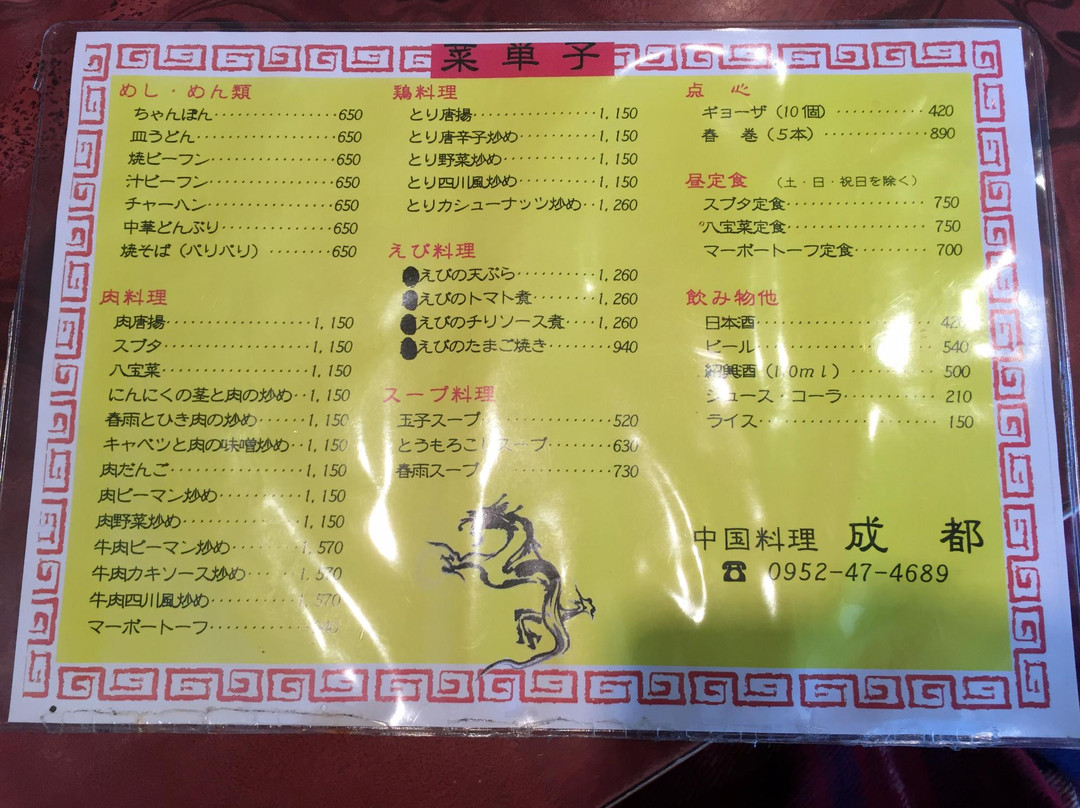 菜単子
めし・めん類
ちゃんぽん 650
皿うどん 650
焼ビーフン 650
汁ビーフン 650
チャーハン 650
中華どんぶり 650
焼そば（バリバリ） 650
肉料理
肉唐揚 1,150
スブタ 1,150
八宝菜 1,150
にんにくの茎と肉の炒め 1,150
春雨とひき肉の炒め 1,150
キャベツと肉の味噌炒め 1,150
肉だんご 1,150
肉ピーマン炒め 1,150
肉野菜炒め 1,150
牛肉ピーマン炒め 1,570
牛肉カキソース炒め 1,570
牛肉四川風炒め 1,570
マーボートーフ
鶏料理
とり唐揚 1,150
とり唐辛子炒め 1,150
とり野菜炒め 1,150
とり四川風炒め 1,150
とりカシューナッツ炒め 1,260
えび料理
えびの天ぷら 1,260
えびのトマト煮 1,260
えびのチリソース煮 1,260
えびのたまご焼き 940
スープ料理
玉子スープ 520
とうもろこしスープ 630
春雨スープ 730
点心
ギョーザ（10個） 420
春巻（5本） 890
昼定食 （土・日・祝日を除く）
スブタ定食 750
八宝菜定食 750
マーボートーフ定食 700
飲み物他
日本酒 420
ビール 540
紹興酒（1.0ml） 500
ジュース・コーラ 210
ライス 150
中国料理 成都
☎ 0952-47-4689